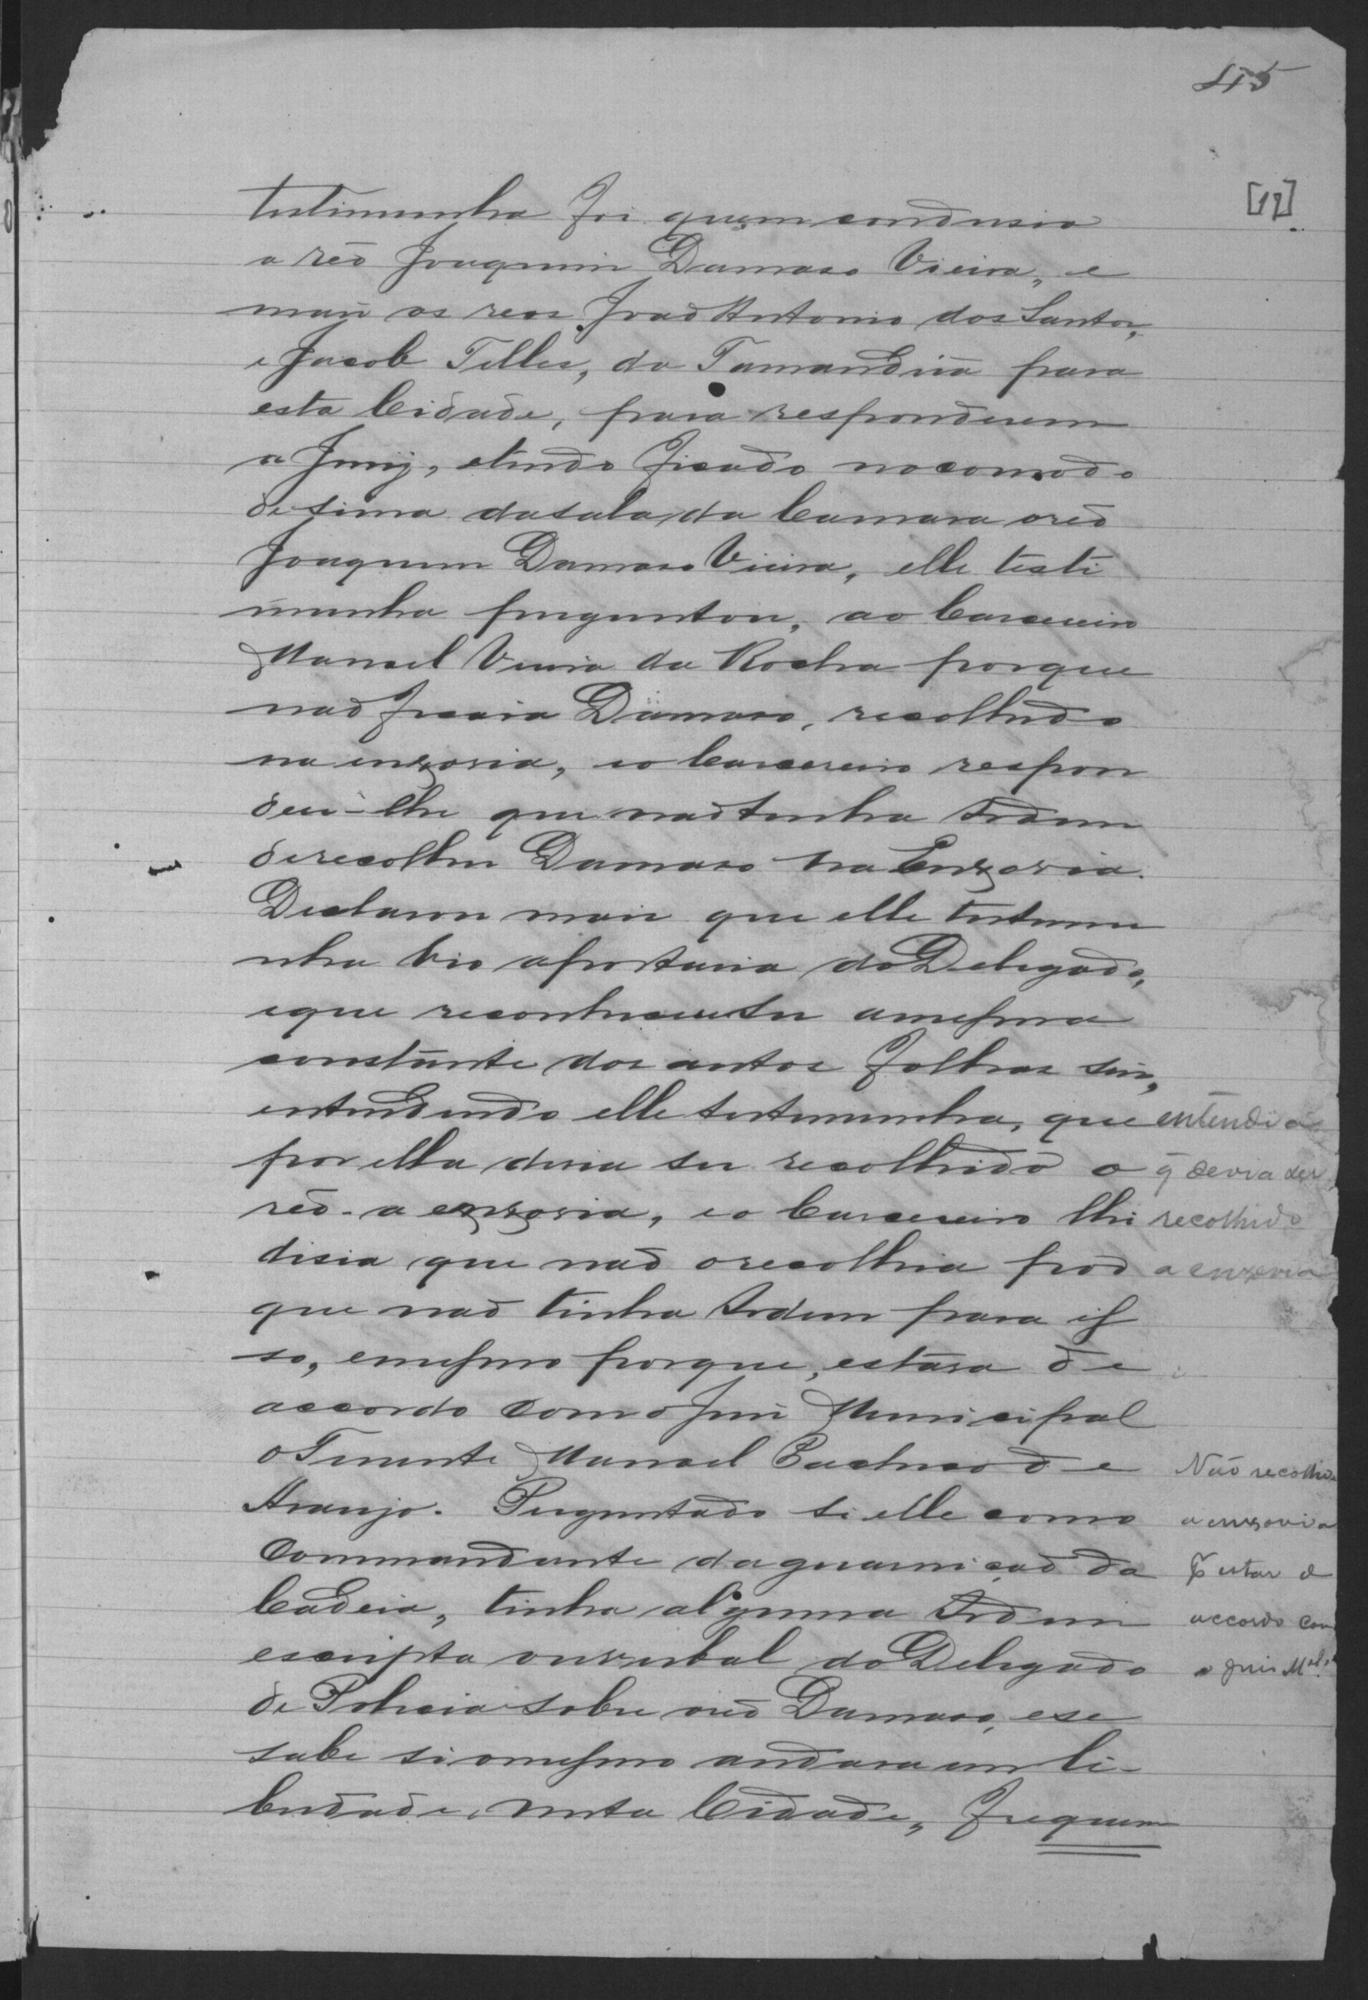 45
[12]
testimunha foi quem condusio
o réo Joaquim Damaso Vieira, e
mais os reos João Antonio dos Santos,
e Jacob Telles, da Tamanduá para
esta Cidade, para responderem
a Jury, e tendo ficado no comodo
de sima da sala da Camara o réo
Joaquim Damaso Vieira, elle testi
munha preguntou, ao Carcereiro
Manoel Vieira da Rocha porque
não ficava Damaso, recolhido
na enxovia, e o Carcereiro respon
deu-lhe que não tinha ordem
de recolher Damaso na Enxovia.
Declarou mais que elle testemu
nha vio a portaria do Delegado,
e que reconheceu ser a mesma
constante dos autos folhas seis,
entendendo elle testemunha, que
por ella devia ser recolhido o
réo a enxovia, e o Carcereiro lhe
disia que não o recolhia por
que não tinha ordem para is
so, e mesmo porque, estava de
accordo com o Juis Municipal
o Tenente Manoel Pacheco de
Araujo. Perguntado si elle como
Commandante da guarnição da
Cadeia, tinha alguma ordem
escripta ou verbal do Delegado
de Policia sobre o réo Damaso, e se
sabe si o mesmo andava em li-
berdade, nesta Cidade, frequen
entendia
q̃ devia ser
recolhido
a enxovia
Não recolhido
a enxovia
p estar de
accordo com
o Juis M.al